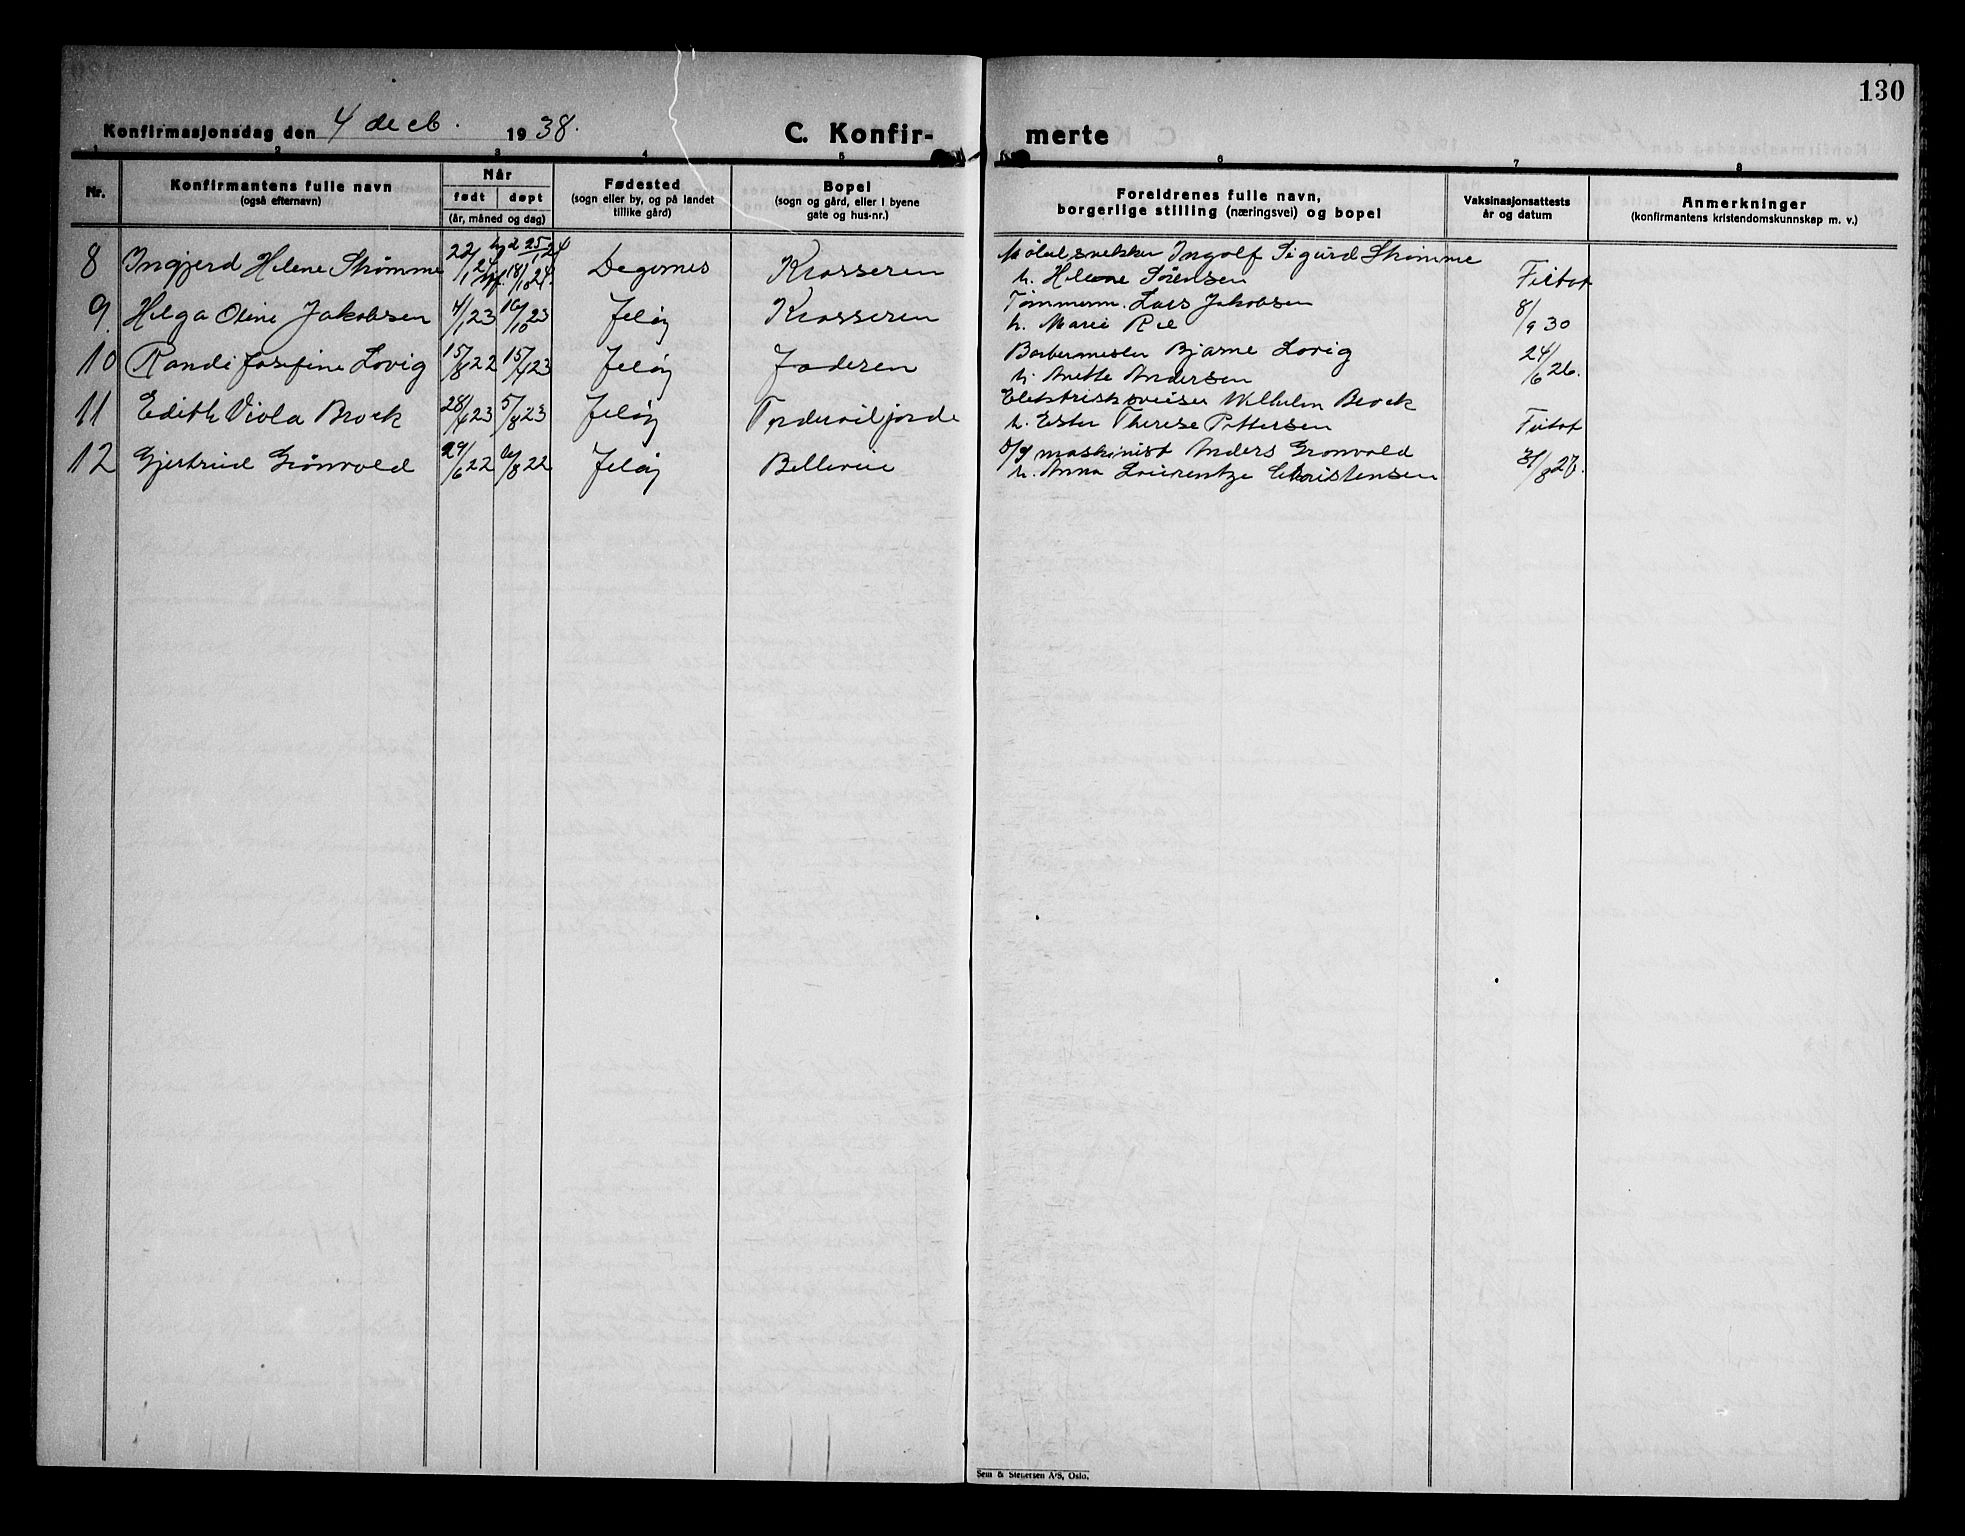 130
Konfirmasjonsdag den 4 decb. 1938.
C. Konfir- merte
1 2 3 4 5 6 7 8
Nr.
Konfirmantens fulle navn
(også efternavn)
Når
født døpt
(år, måned og dag)
Fødested
(sogn eller by, og på landet
tillike gård)
Bopel
(sogn og gård, eller i byene
gate og hus-nr.)
Foreldrenes fulle navn,
borgerlige stilling (næringsvei) og bopel
Vaksinasjonsattests
år og datum
Anmerkninger
(konfirmantens kristendomskunnskap m. v.)
8 Ingjerd Helene Strømme 22/1 24 hjd 25/1 24 18/10 24. Degernes Krosseren Møbelsnekker Ingolf Sigurd Strømme
h. Helene Sørensen Fritat
9. Helga Oline Jakobsen 4/1 23 16/10 23 Jeløy Krosseren Tømmerm. Lars Jakobsen
h. Marie Roe 8/9 30
10 Randi Josefine Lovig 15/8 22 15/4 23 Jeløy Joderen Barbermester Bjarne Lovig
h. Anette Andersen 24/6 26.
11 Edith Viola Brock 28/4 23 5/8 23 Jeløy Elektrisksveiser Wilhelm Brock
h. Ester Therese Pettersen Fritat
12 Gjertrud Grønvold 29/6 22 6/8 22 Jeløy Bellevue s/y maskinist Anders Gronvold
h. Anna Laurentze Christensen 31/8 27.
Sem & Stenersen A/S, Oslo.